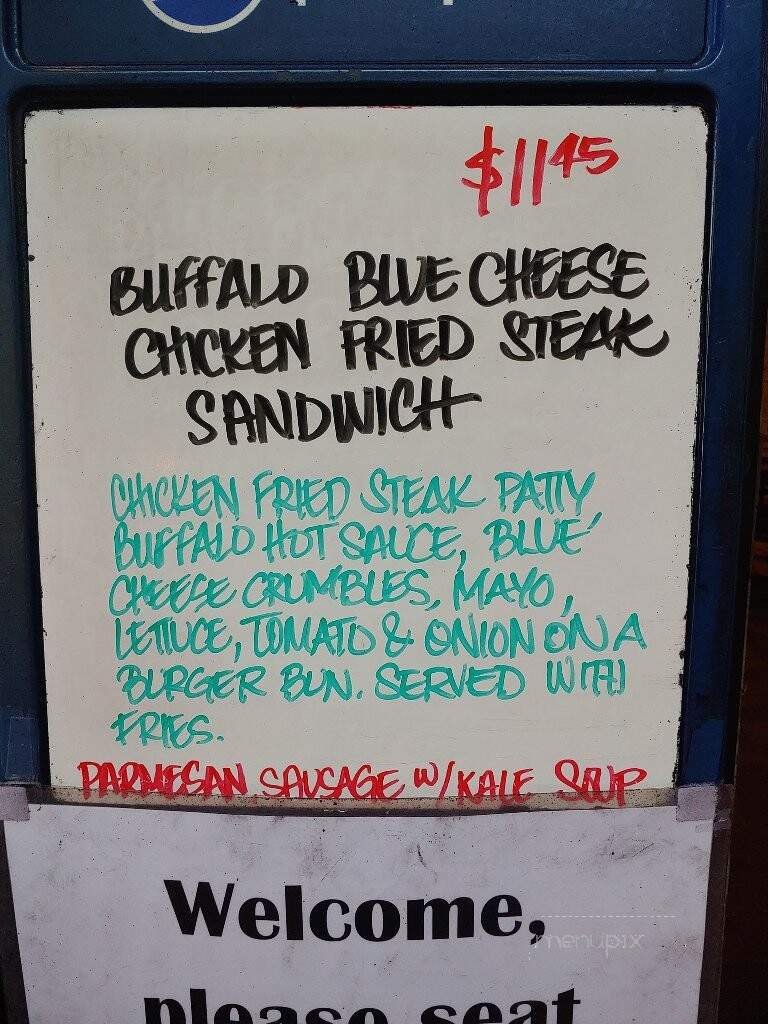 $11.45
BUFFALO BLUE CHEESE
CHICKEN FRIED STEAK
SANDWICH
CHICKEN FRIED STEAK PATTY,
BUFFALO HOT SAUCE, BLUE
CHEESE CRUMBLES, MAYO,
LETTUCE, TOMATO & ONION ON A
BURGER BUN. SERVED WITH
FRIES.
PARMESAN SAUSAGE W/KALE SOUP
Welcome,
menupix
please seat